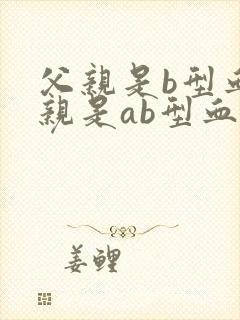 父親是b型血
親是ab型血
姜鲤